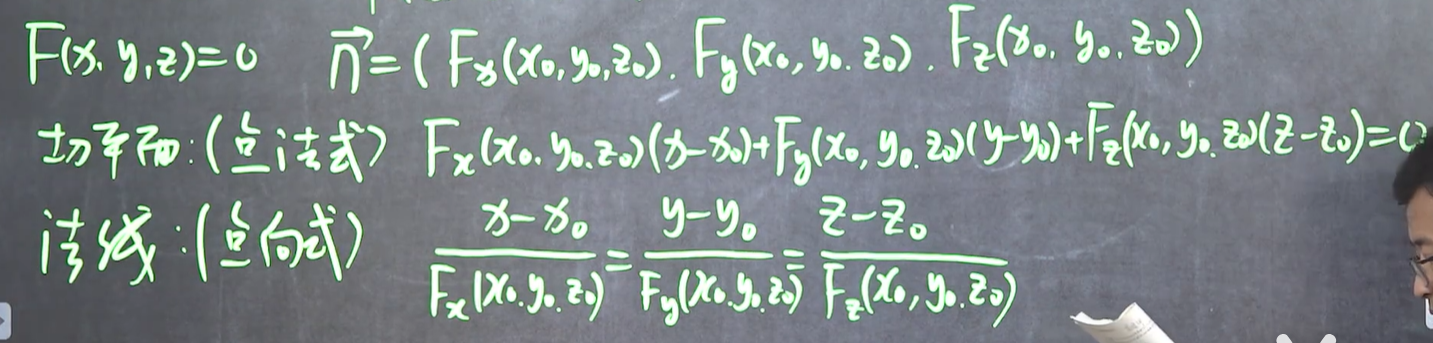 F(x, y, z)=0 n⃗=(Fx(x₀, y₀, z₀), Fy(x₀, y₀, z₀), Fz(x₀, y₀, z₀))
切平面:(点法式) Fx(x₀, y₀, z₀)(x-x₀)+Fy(x₀, y₀, z₀)(y-y₀)+Fz(x₀, y₀, z₀)(z-z₀)=0
法线:(点向式) (x-x₀)/Fx(x₀, y₀, z₀) = (y-y₀)/Fy(x₀, y₀, z₀) = (z-z₀)/Fz(x₀, y₀, z₀)